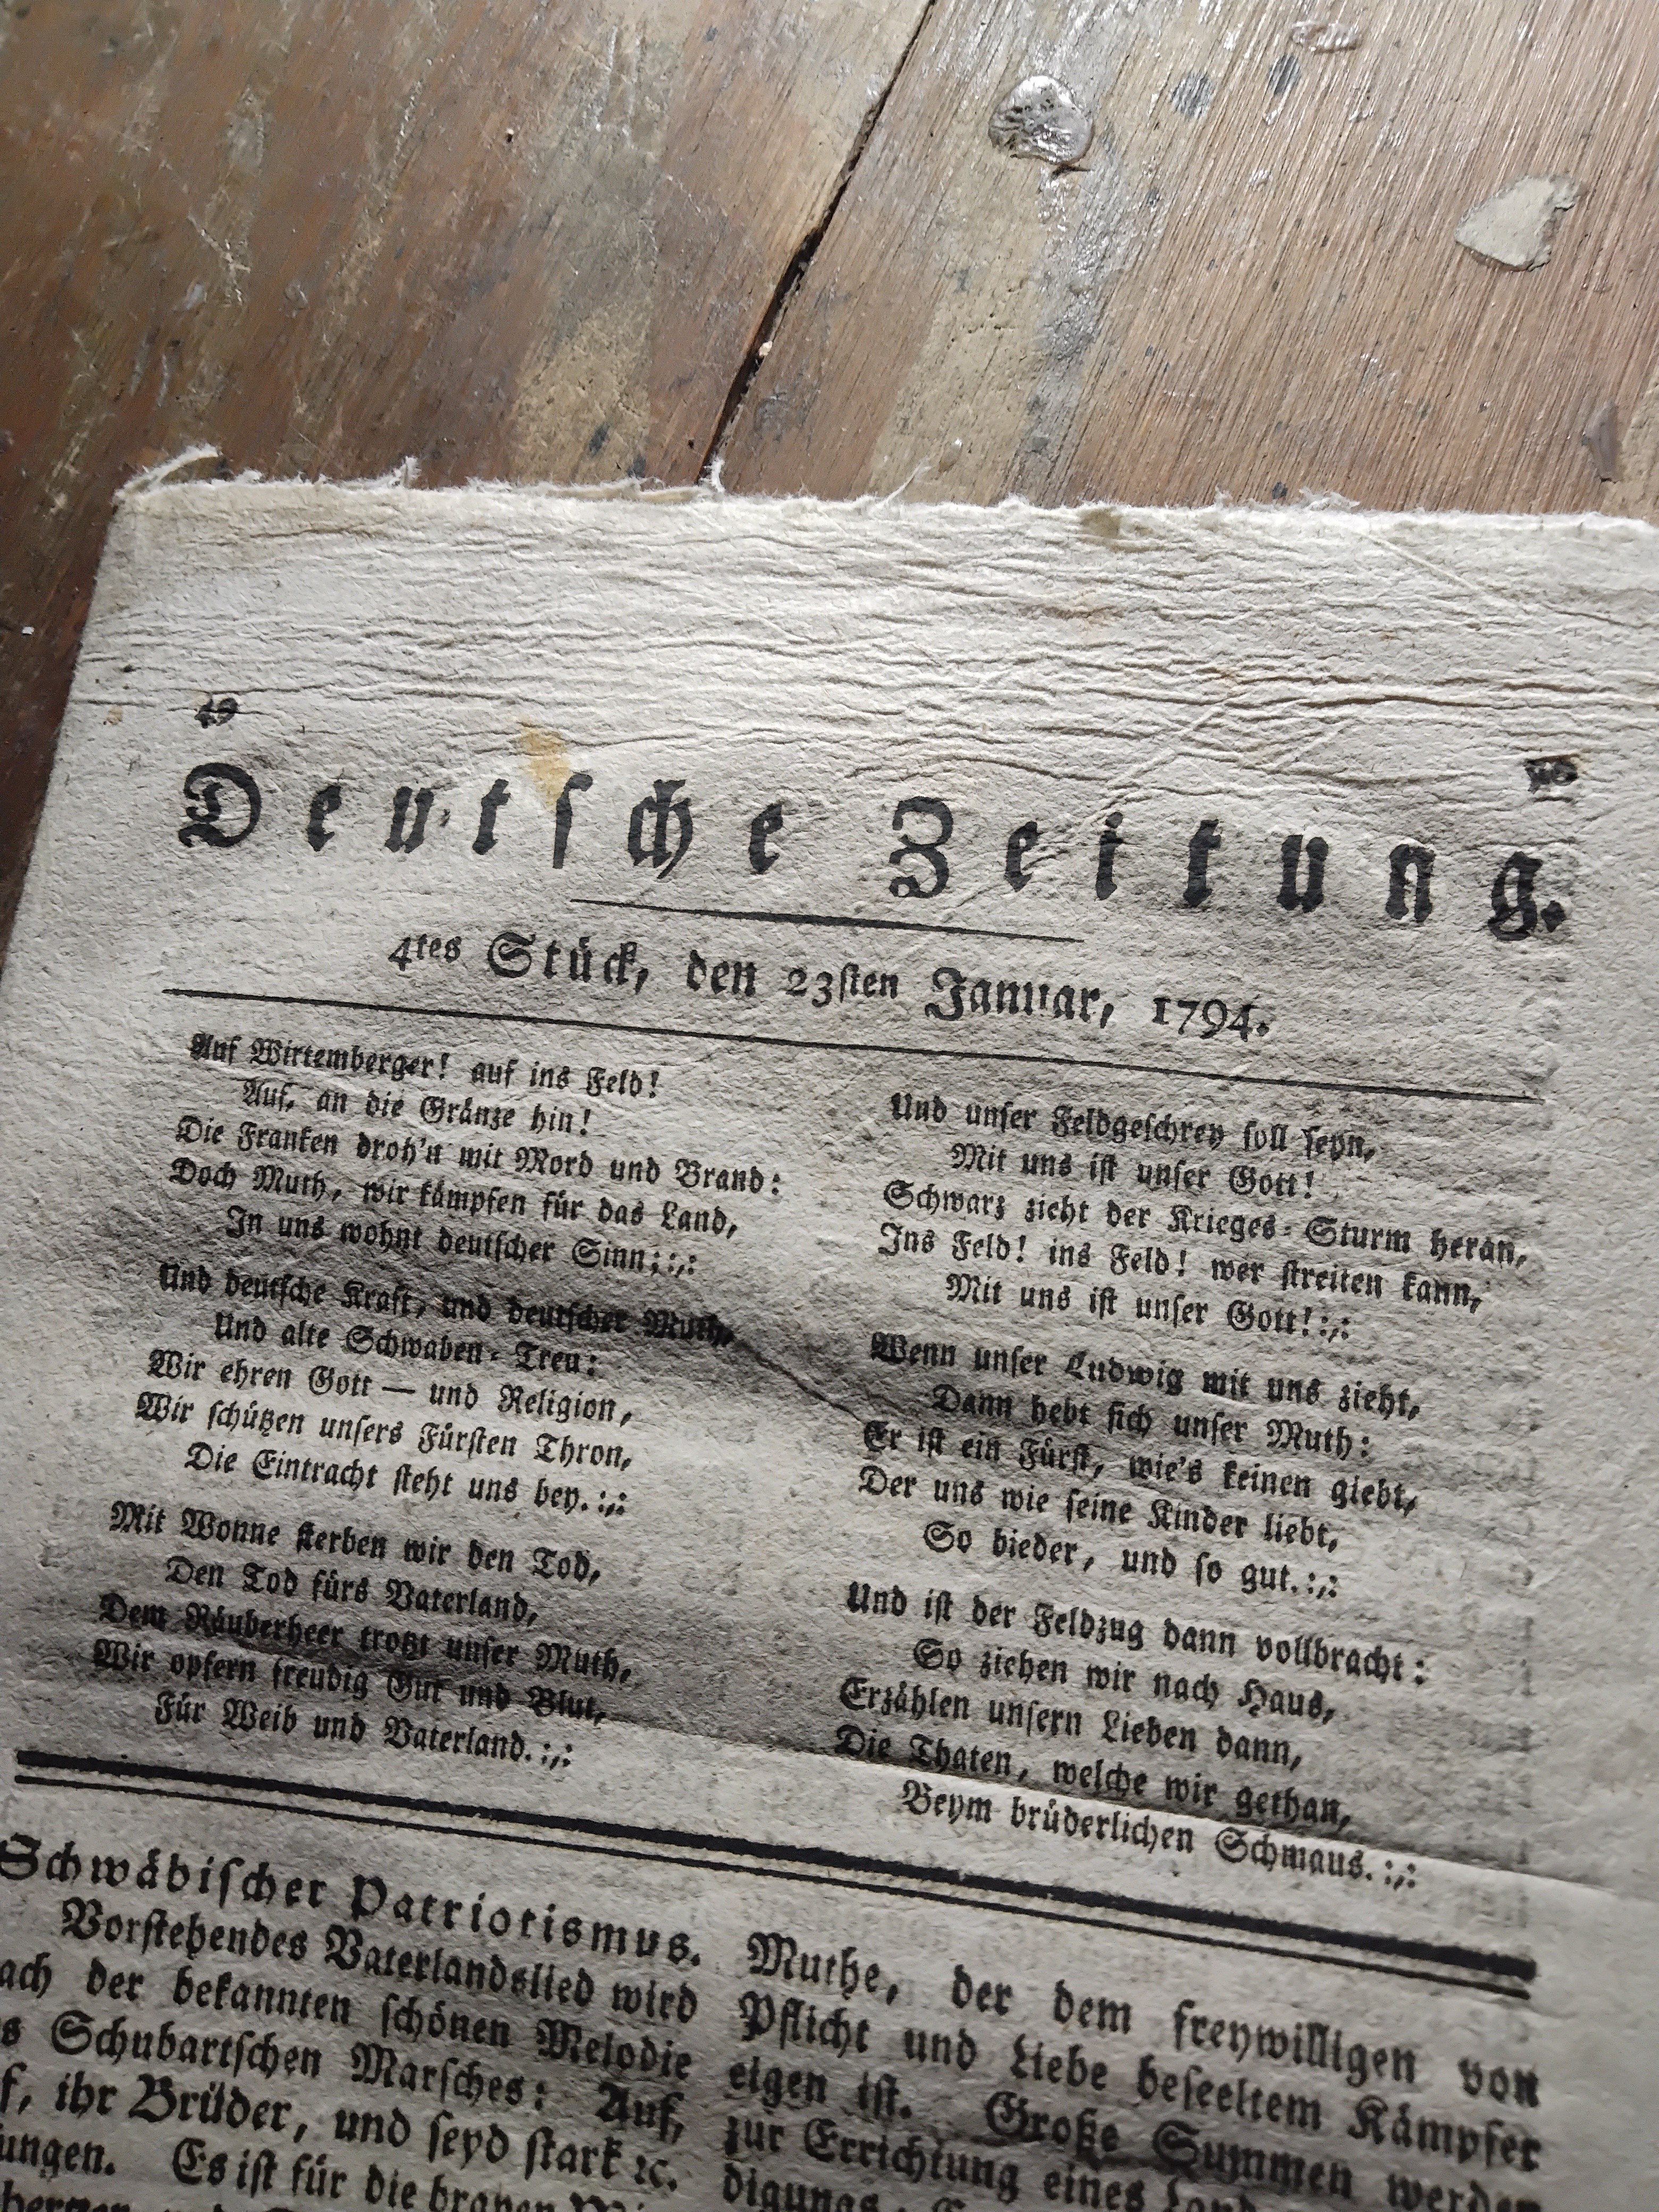 49
50
Deutsche Zeitung.
4tes Stück, den 23sten Januar, 1794.
Auf Wirtemberger! auf ins Feld!
Auf, an die Gränze hin!
Die Franken droh'n mit Mord und Brand:
Doch Muth, wir kämpfen für das Land,
In uns wohnt deutscher Sinn;:,:
Und deutsche Kraft, und deutscher Muth,
Und alte Schwaben-Treu:
Wir ehren Gott — und Religion,
Wir schützen unsers Fürsten Thron,
Die Eintracht steht uns bey.:,:
Mit Wonne sterben wir den Tod,
Den Tod fürs Vaterland,
Dem Räuberheer trotzt unser Muth,
Wir opfern freudig Gut und Blut,
Für Weib und Vaterland.:,:
Und unser Feldgeschrey soll seyn,
Mit uns ist unser Gott!
Schwarz zieht der Krieges-Sturm heran,
Ins Feld! ins Feld! wer streiten kann,
Mit uns ist unser Gott!:,:
Wenn unser Ludwig mit uns zieht,
Dann hebt sich unser Muth:
Er ist ein Fürst, wie's keinen giebt,
Der uns wie seine Kinder liebt,
So bieder, und so gut.:,:
Und ist der Feldzug dann vollbracht:
So ziehen wir nach Haus,
Erzählen unsern Lieben dann,
Die Thaten, welche wir gethan,
Beym brüderlichen Schmaus.:,:
Schwäbischer Patriotismus.
Vorstehendes Vaterlandslied wird
ach der bekannten schönen Melodie
s Schubartschen Marsches: Auf,
f, ihr Brüder, und seyd stark ꝛc.
ungen. Es ist für die braven
Muthe, der dem freywilligen von
Pflicht und Liebe beseeltem Kämpfer
eigen ist. Große Summen werden
zur Errichtung eines